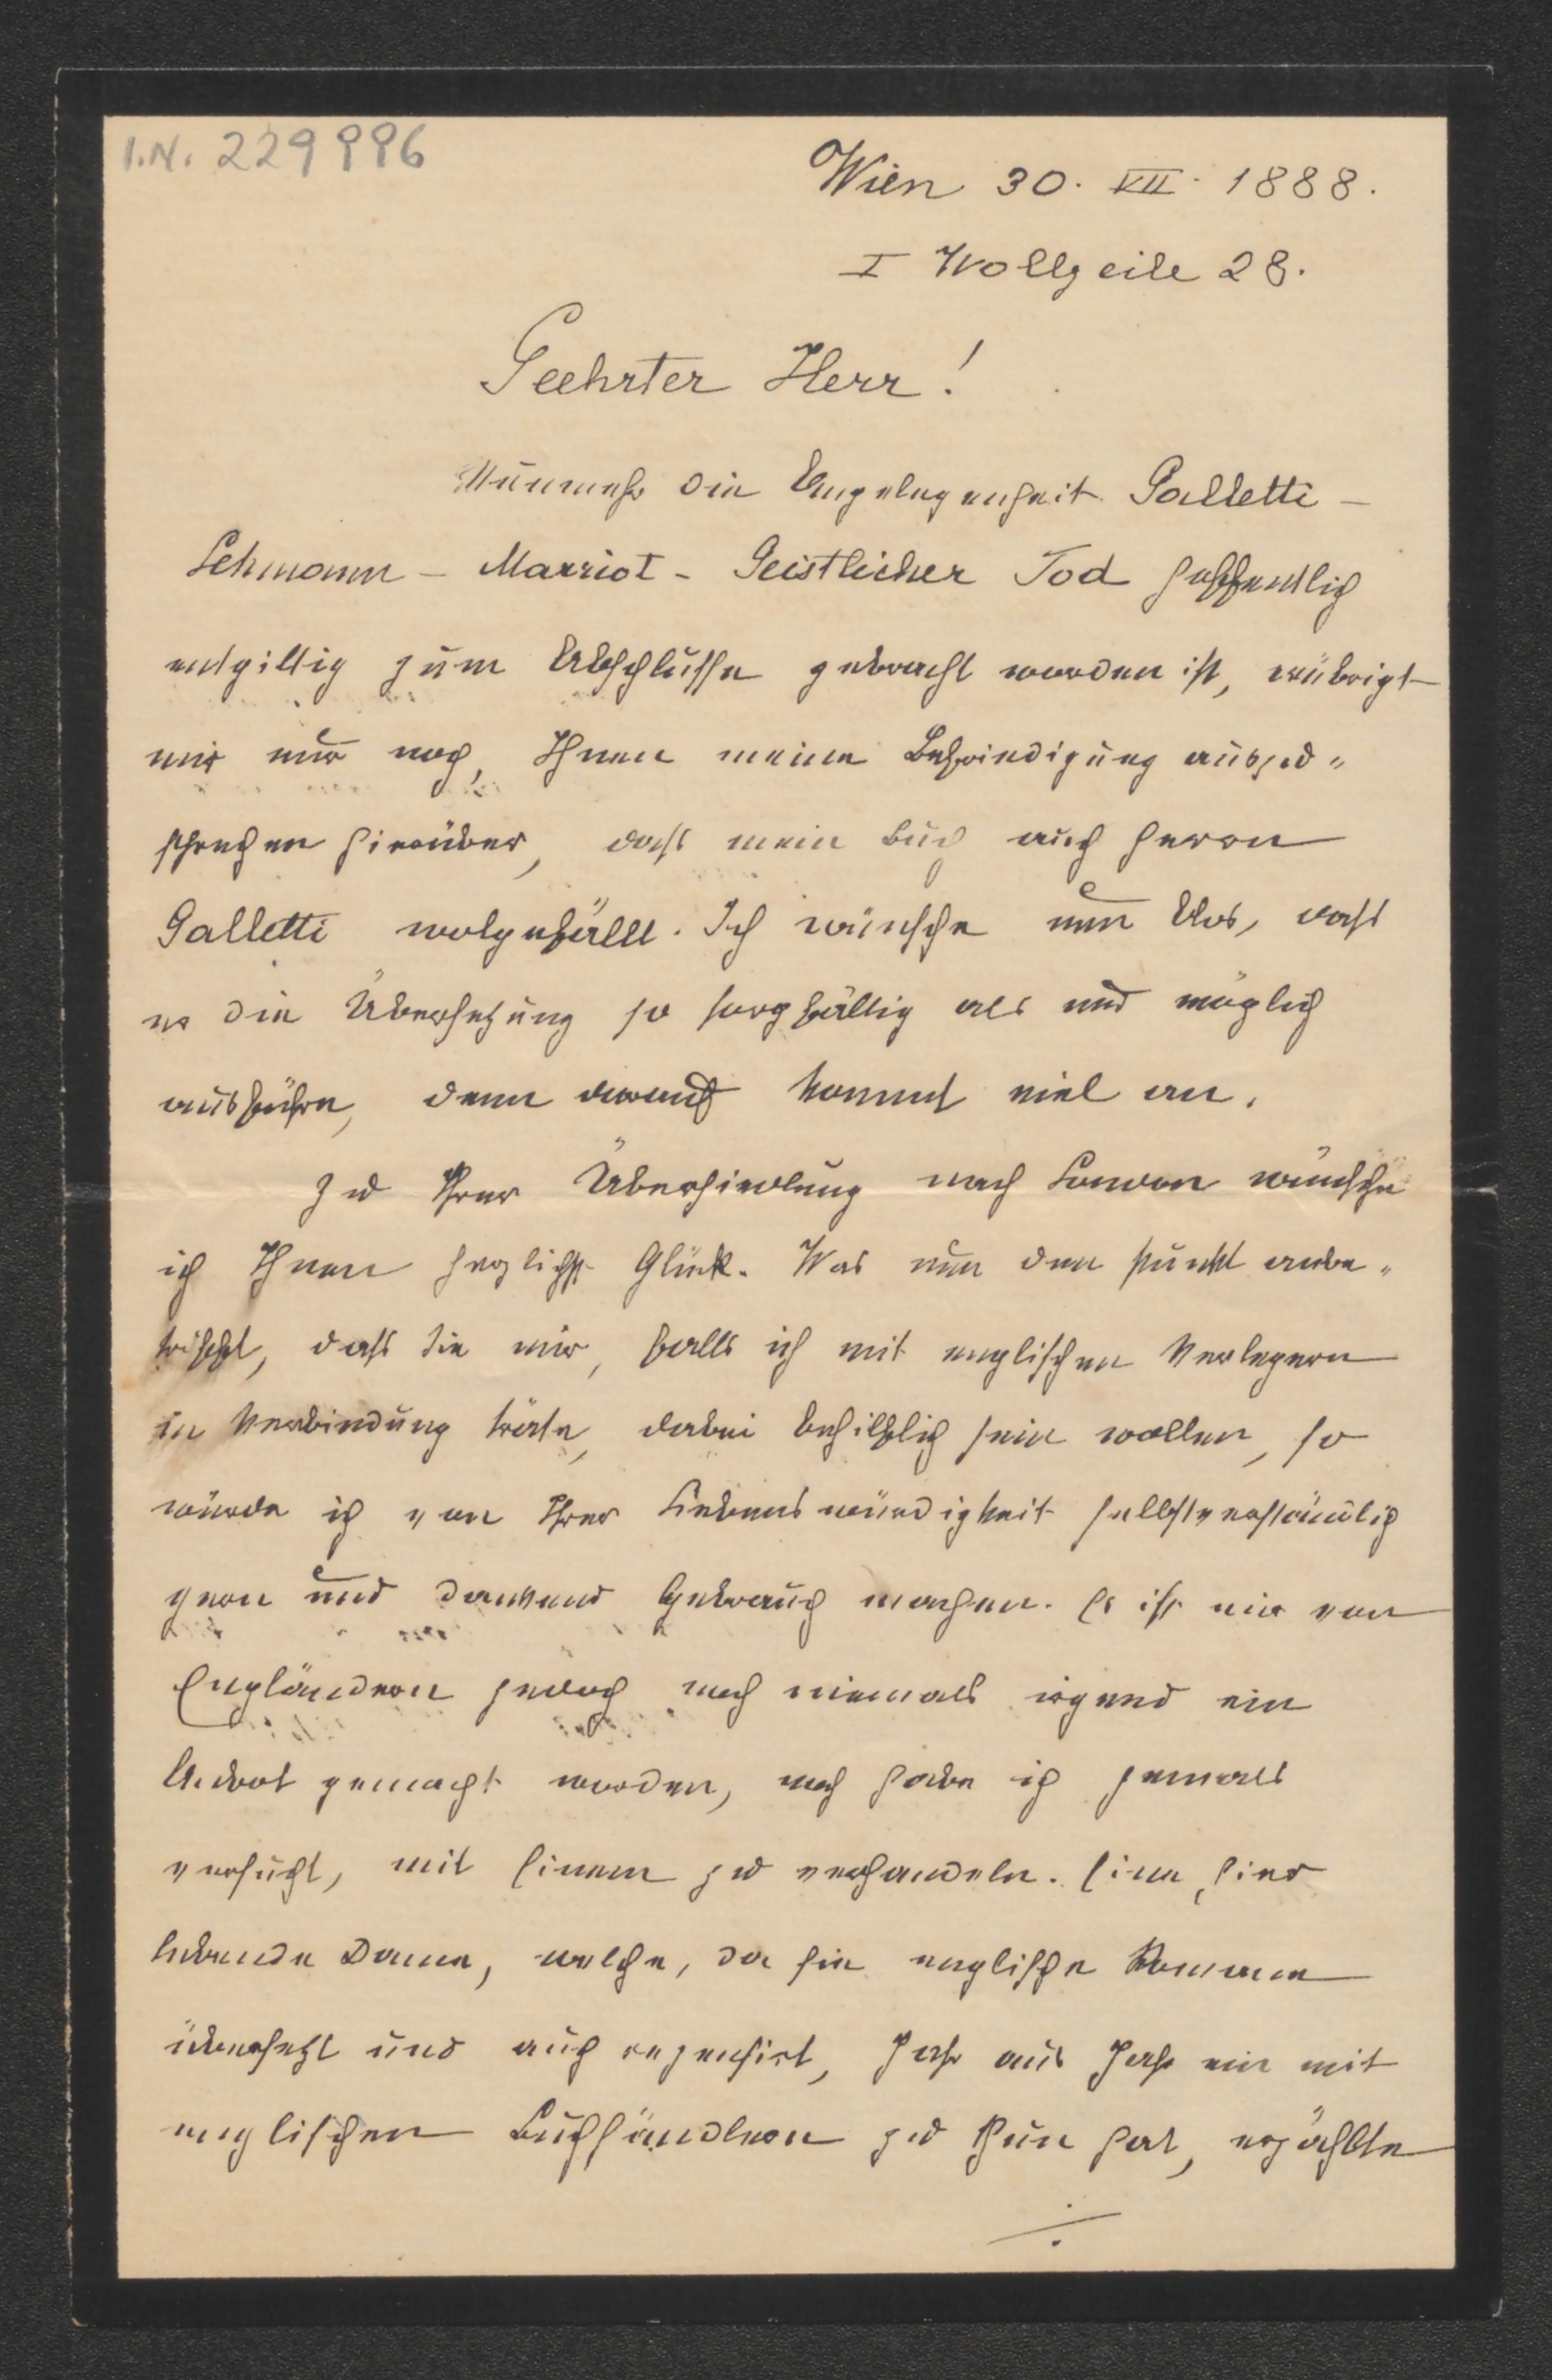 I.N. 229996
Wien 30. VII. 1888.
I Wollzeile 28.
Geehrter Herr!
Nunmehr die Angelegenheit Galletti –
Lehmann – Marriot – Geistlicher Tod hoffentlich
entgiltig zum Abschlusse gebracht worden ist, erübrigt
mir nur noch, Ihnen meine Befriedigung auszu„
sprechen hierüber, dass mein Buch auch Herrn
Galletti wolgefällt. Ich wünsche nun blos, dass
er die Übersetzung so sorgfältig als nur möglich
ausführe, denn darauf kommt viel an.
Zu Ihrer Übersiedlung nach London wünsche
ich Ihnen herzlichst Glück. Was nun den Punkt anbe„
trifft, dass Sie mir, falls ich mit englischen Verlegern
in Verbindung träte, dabei behilflich sein wollen, so
würde ich von Ihrer Liebenswürdigkeit selbstverständlich
gern und dankend Gebrauch machen. Es ist mir von
Engländern jedoch noch niemals irgend ein
Anbot gemacht worden, noch habe ich jemals
versucht, mit Einem zu verhandeln. Eine, hier
lebende Dame, welche, da sie englische Romane
übersetzt und auch rezensirt, Jahr aus Jahr ein mit
englischen Buchhändlern zu thun hat, erzählte
./.